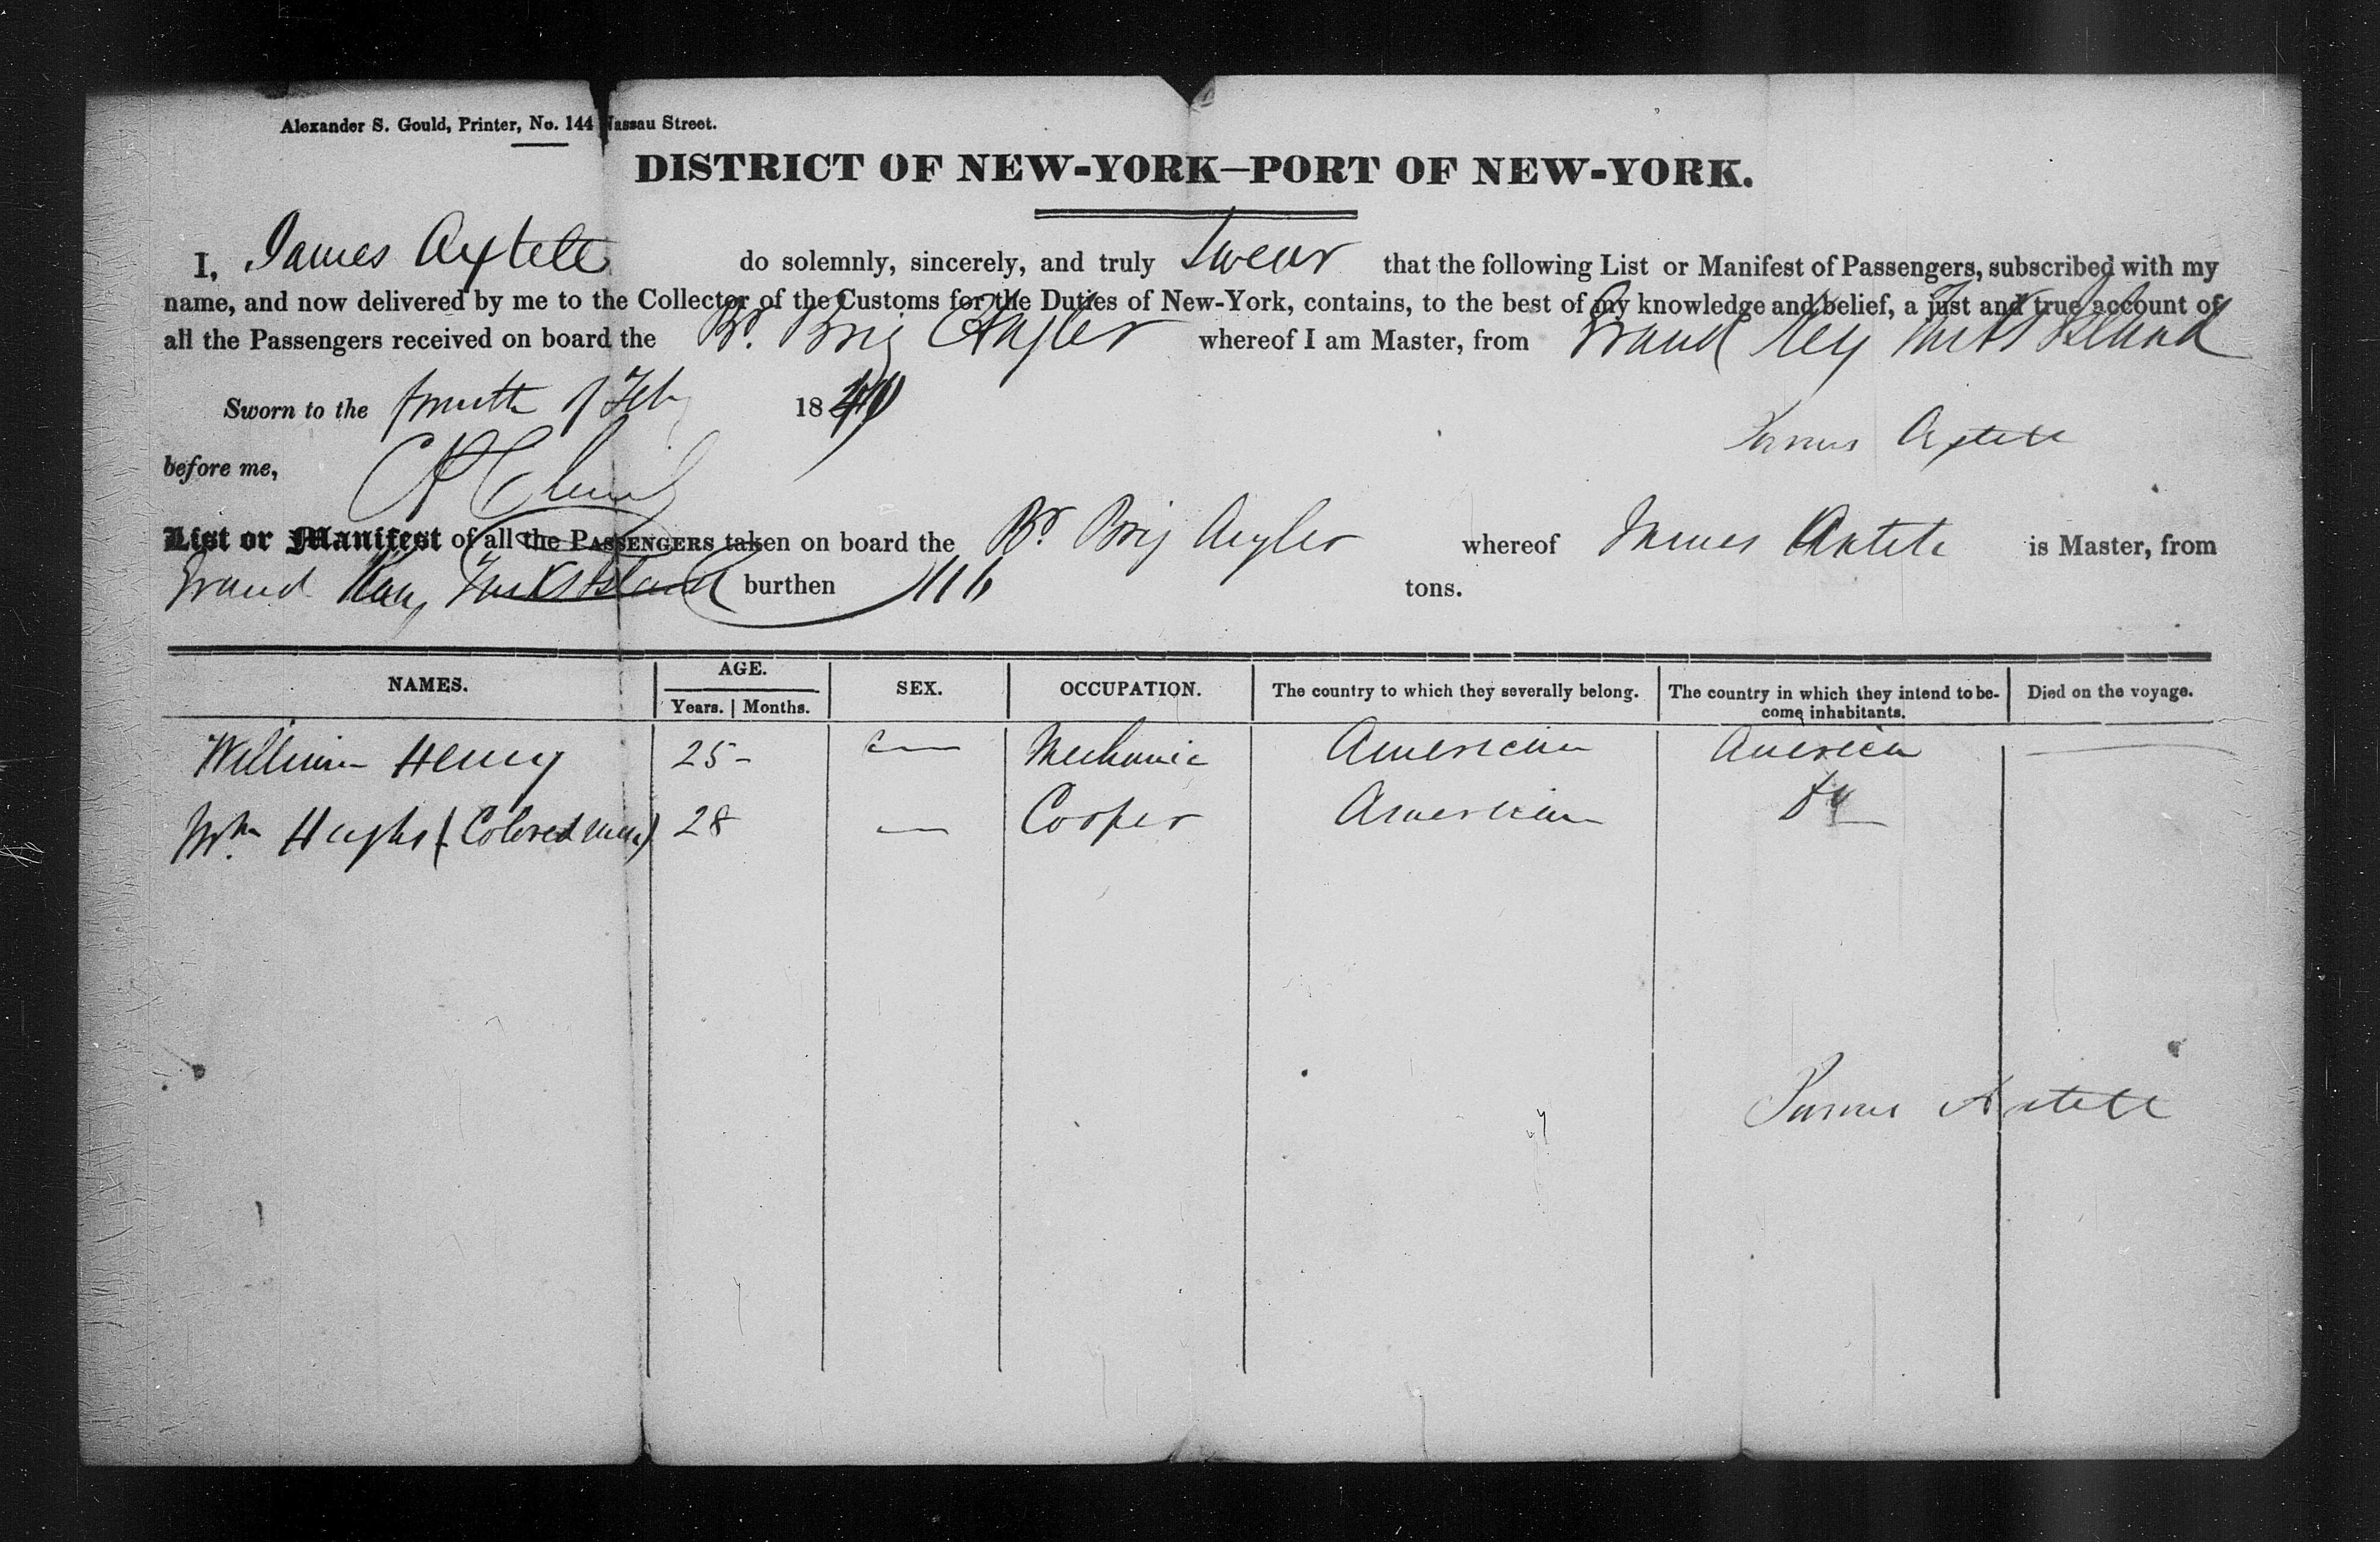 Alexander S. Gould, Printer, No. 144 Nassau Street.
DISTRICT OF NEW-YORK—PORT OF NEW-YORK.
I, James Axtell do solemnly, sincerely, and truly Swear that the following List or Manifest of Passengers, subscribed with my
name, and now delivered by me to the Collector of the Customs for the Duties of New-York, contains, to the best of my knowledge and belief, a just and true account of
all the Passengers received on board the Br. Brig Angler whereof I am Master, from Grand Key Turks Island
Sworn to the fourth of Feby 1840
James Axtell
before me,
List or Manifest of all the PASSENGERS taken on board the Br. Brig Angler whereof James Axtell is Master, from
Grand Kay Turks Island burthen 116 tons.
NAMES. AGE. SEX. OCCUPATION. The country to which they severally belong. The country in which they intend to be- Died on the voyage.
Years. Months. come inhabitants.
William Henry 25 - — Mechanic American America —
Wm Hughs (Colored men) 28 — Cooper American Do —
James Axtell